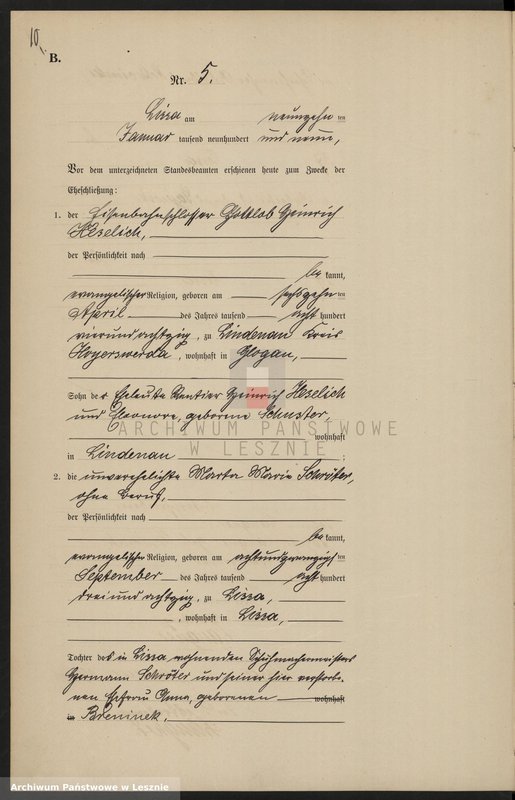 10
B.
Nr. 5.
Lissa am neunzehn ten
Januar tausend neunhundert und neun,
Vor dem unterzeichneten Standesbeamten erschienen heute zum Zwecke der
Eheschließung:
1. der Eisenbahnschlosser Gottlob Heinrich
Heselich,
der Persönlichkeit nach
be kannt,
evangelischer Religion, geboren am sechszehn ten
April des Jahres tausend acht hundert
vierundachtzig, zu Lindenau Kreis
Hoyerswerda, wohnhaft in Glogau,
Sohn der Eheleute Rentier Heinrich Heselich
und Eleonore, geborene Schuster,
wohnhaft
in Lindenau ;
2. die unverehelichte Marta Marie Schröter,
ohne Beruf,
der Persönlichkeit nach
be kannt,
evangelischer Religion, geboren am achtundzwanzigs ten
September des Jahres tausend acht hundert
dreiundachtzig, zu Lissa,
, wohnhaft in Lissa,
Tochter des in Lissa wohnenden Schuhmachermeisters
Hermann Schröter und seiner hier verstorbe-
nen Ehefrau Anna, geborenen wohnhaft
in Breninek,
ARCHIWUM PAŃSTWOWE
W LESZNIE
Archiwum Państwowe w Lesznie